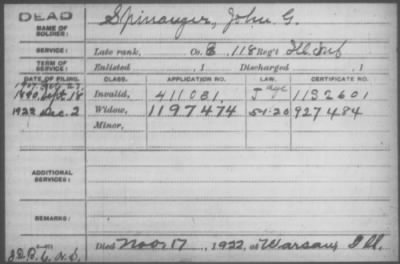 DEAD
NAME OF SOLDIER: Spinauger, John G.
SERVICE: Late rank, Co. B, 118 Reg't Ill. Inf
TERM OF SERVICE: Enlisted , 1 Discharged , 1
DATE OF FILING. CLASS. APPLICATION NO. LAW. CERTIFICATE NO.
1890 Sept 18 Invalid, 411031 1132601
1922 Dec. 2 Widow, 1197474 5-1-20 927484
Minor,
ADDITIONAL SERVICES:
REMARKS:
Died Nov 17, 1922, at Warsaw, Ill.